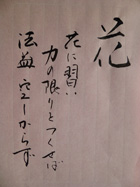 花
花に習い
力の限りをつくせば
法益空しからず